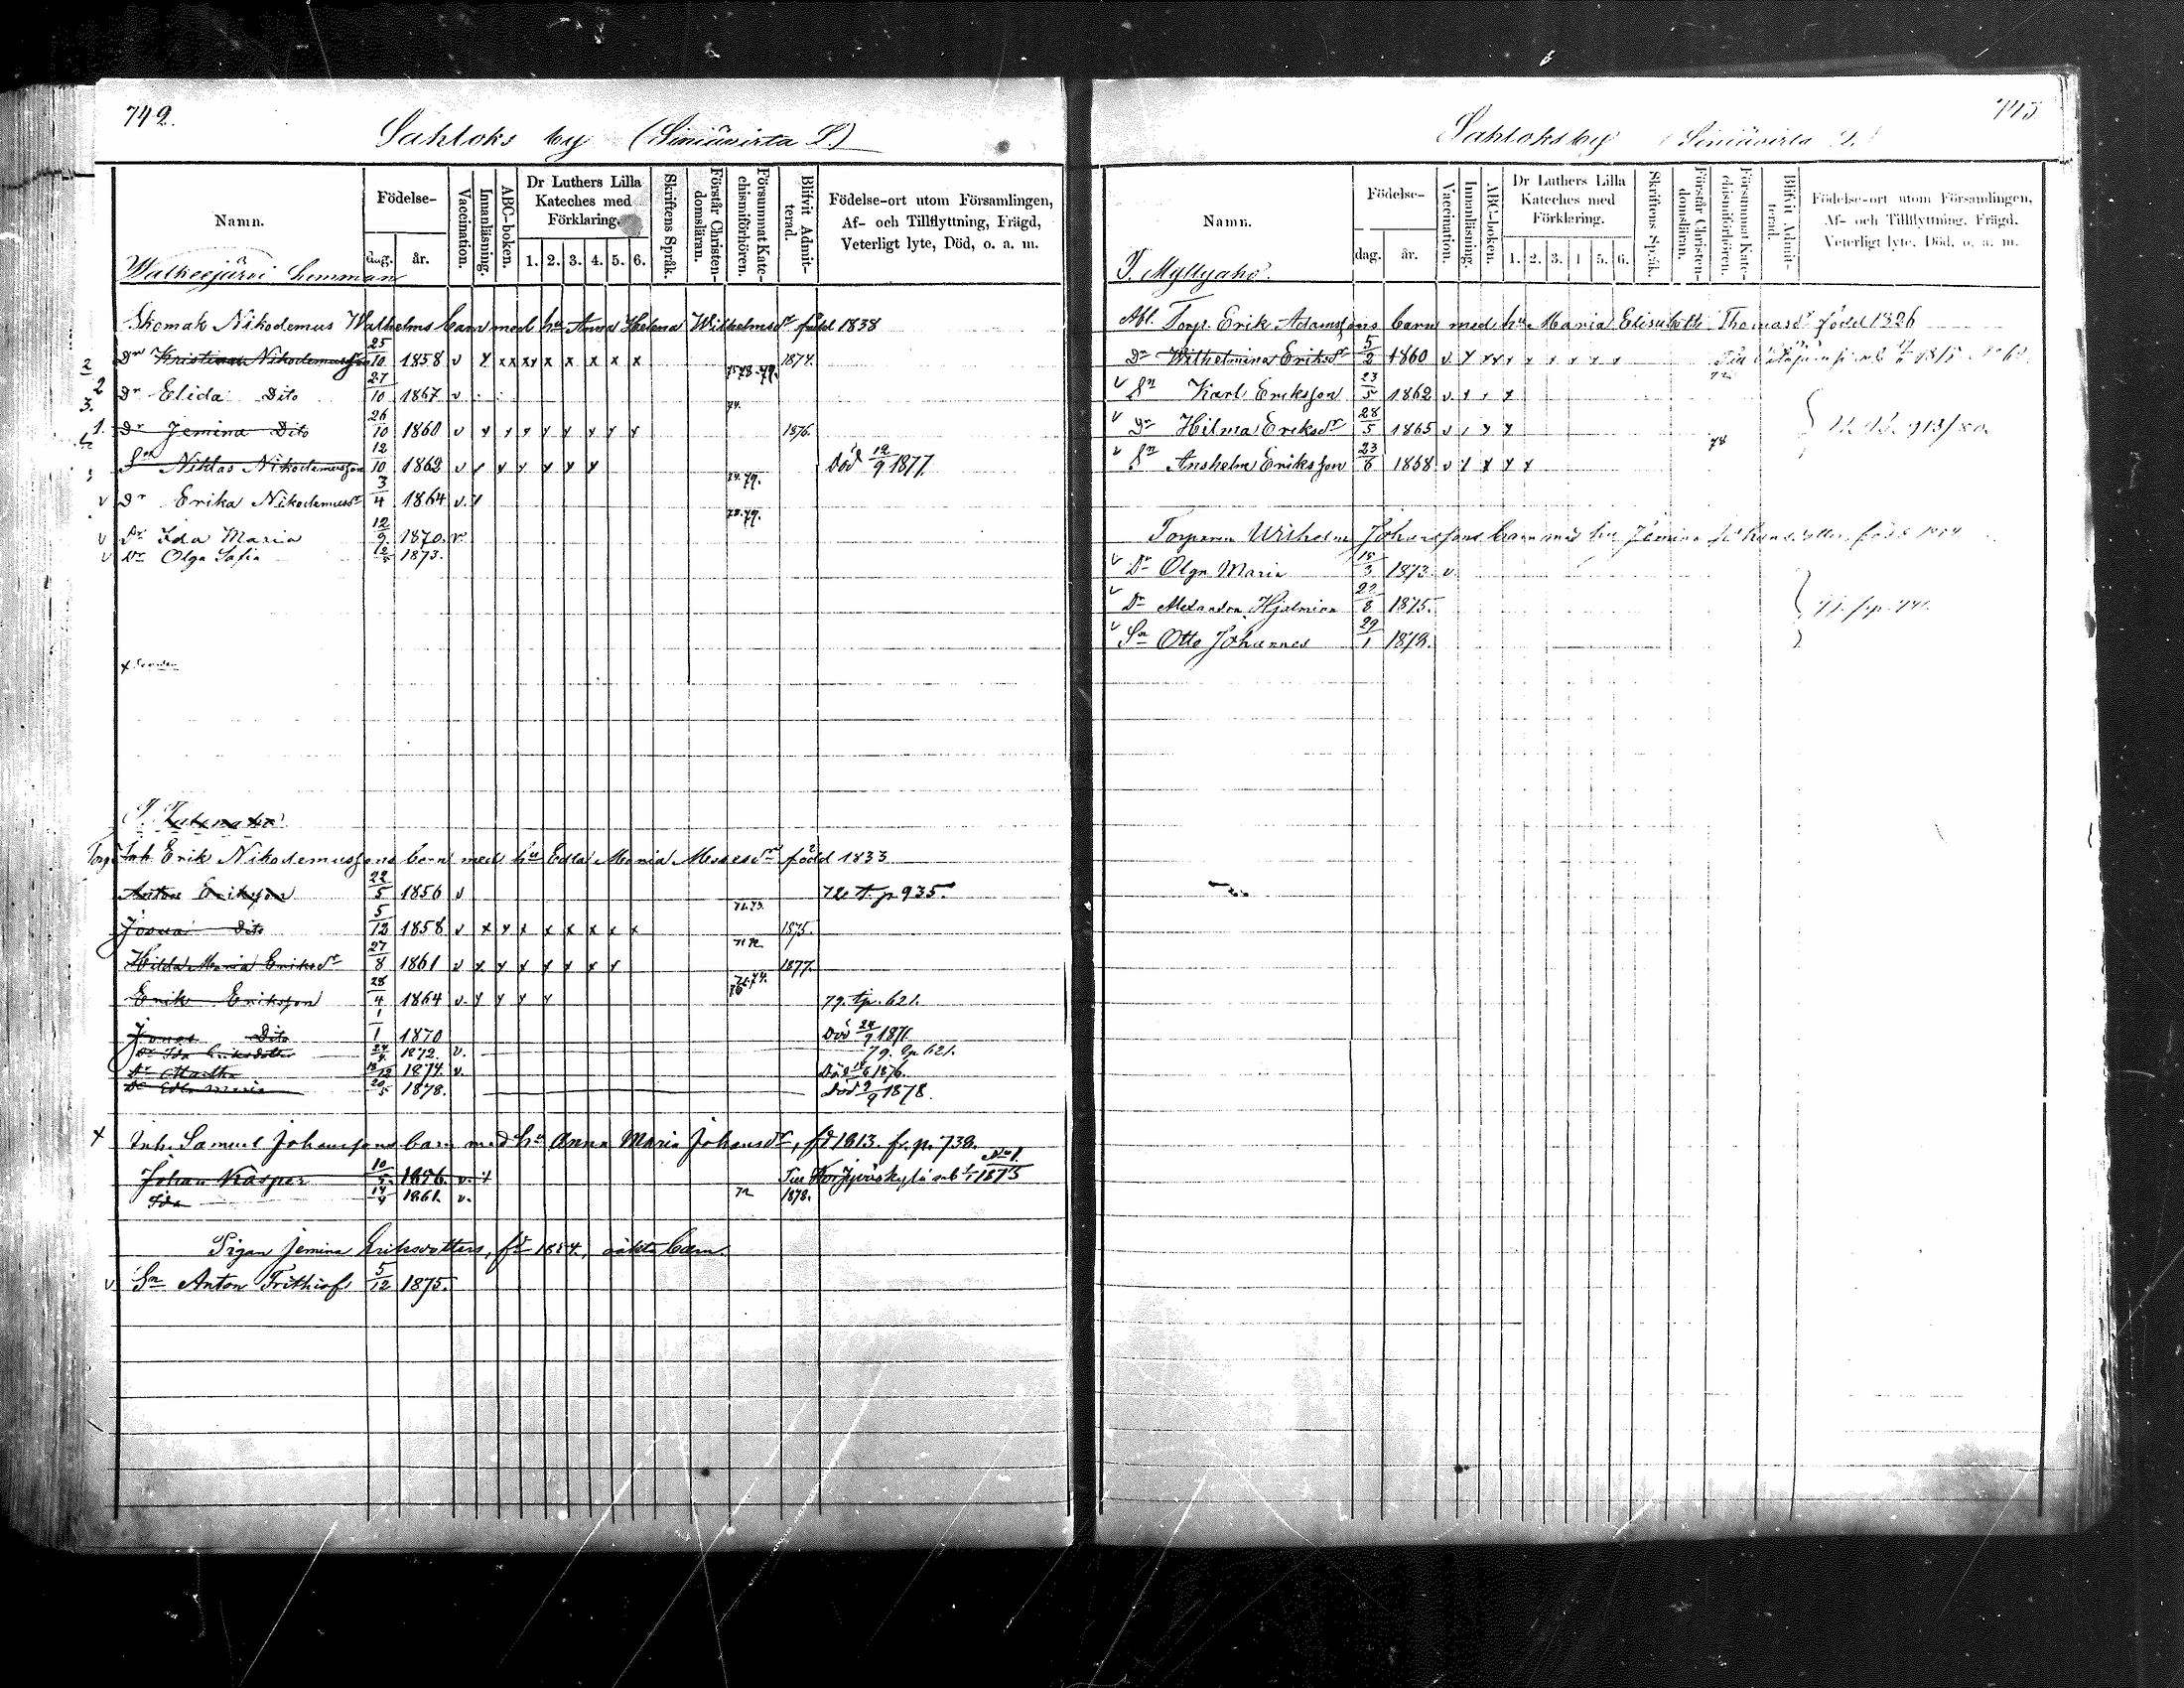 742.
Sahloks by (Siniävirta L.)
Namn.
Födelse-
dag.
år.
Vaccination.
Innanläsning.
ABC-boken.
Dr Luthers Lilla Kateches med Förklaring.
1. 2. 3. 4. 5. 6.
Skriftens Språk.
Förstår Christendomsläran.
Försummat Katechismiförhören.
Blifvit Admitterad.
Födelse-ort utom Församlingen, Af- och Tillflyttning, Frägd, Veterligt lyte, Död, o. a. m.
Walkeejärvi hemman
Skomak Nikodemus Walhelms barn med hu Anna Helena Wilhelmsdr född 1838
Dr Kristina Nikodemusson 25/10 1858 v x x x x x x x x x 1874.
2 Dr Elida Dito 27/10 1867 v
1. Dr Jemina Dito 26/10 1860 v x x x x x x x x 74. 1876.
Sn Niklas Nikodemusson 12/10 1862 v x x x x x x Död 12/9 1877
v Dr Erika Nikodemusdr 3/4 1864 v. x 74.79.
v Dr Ida Maria 12/9 1870. v. 78.79.
v Dr Olga Sofia 12/5 1873.
Torp. Inh Erik Nikodemussons barn med hu Edla Maria Mosesdr född 1833
Anton Eriksson 22/5 1856 v 72 t. p 935.
Josua Dito 5/12 1858 v x x x x x x x x 1875.
Hilda Maria Eriksdr 27/8 1861 v x x x x x x x 1877.
Erik Eriksson 28/4 1864 v. x x x x 79. tp. 621.
Jonas Dito 1/1 1870 Död 24/9 1871.
Dr Ida Eriksdotter 24/4 1872. v. 79. tp 621.
Dr Martha 13/12 1874. v. Död 1876.
Dr Edla Maria 20/5 1878. Död 9/9 1878.
x Inh. Samuel Johanssons barn med hu Anna Maria Johansdr, fd 1813. fr. p. 738.
Johan Kasper 10/5 1856. v. x 1/1 1873 No 1.
Ida 14/4 1861. v. 72 1878.
Pigan Jemina Eriksdotters, fd 1854, oäkta barn.
v Sn Anton Frithiof 5/12 1875.
743
Sahloks by (Siniävirta L.)
Namn.
Födelse-
dag.
år.
Vaccination.
Innanläsning.
ABC-boken.
Dr Luthers Lilla Kateches med Förklaring.
1. 2. 3. 4 5. 6.
Skriftens Språk.
Förstår Christendomsläran.
Försummat Katechismiförhören.
Blifvit Admitterad.
Födelse-ort utom Församlingen, Af- och Tillflyttning, Frägd, Veterligt lyte, Död, o. a. m.
T. Myllyaho.
Afl. Torp. Erik Adamssons barn med hu Maria Elisabeth Thomasdr född 1826
Dr Wilhelmina Eriksdr 5/2 1860 v x x x x x x x x
v Sn Karl Eriksson 23/5 1862 v x x x
v Dr Hilma Eriksdr 28/5 1865 v x x x 78
v Sn Anshelm Eriksson 23/6 1868 v x x x x
Torparen Wilhelm Johanssons barn med hu Jemina
v Dr Olga Maria 15/3 1873. v.
v Dr Alexandra Hjalmina 22/8 1875.
v Sn Otto Johannes 29/1 1878.